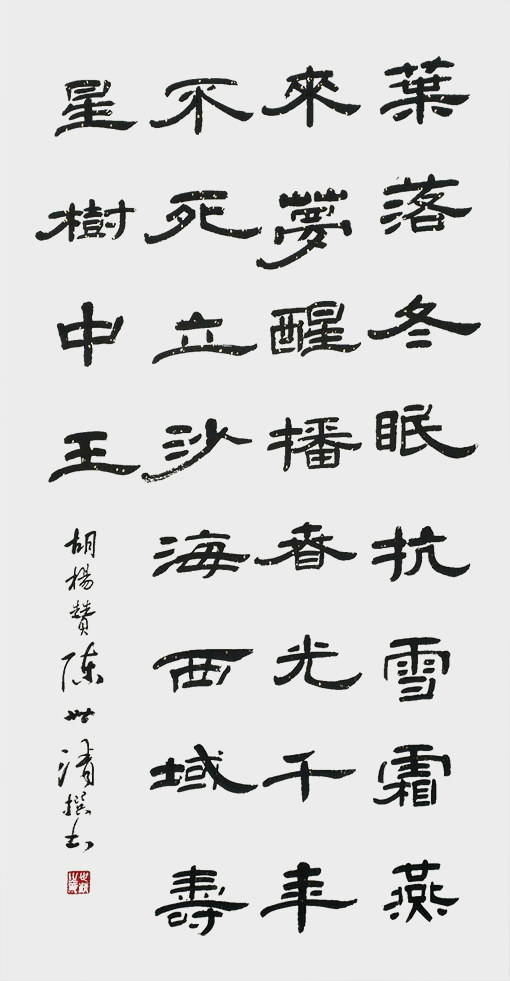 葉落冬眠抗雪霜燕
來夢醒播春光千年
不死立沙海西域壽
星樹中王
胡楊贊陳世清撰書